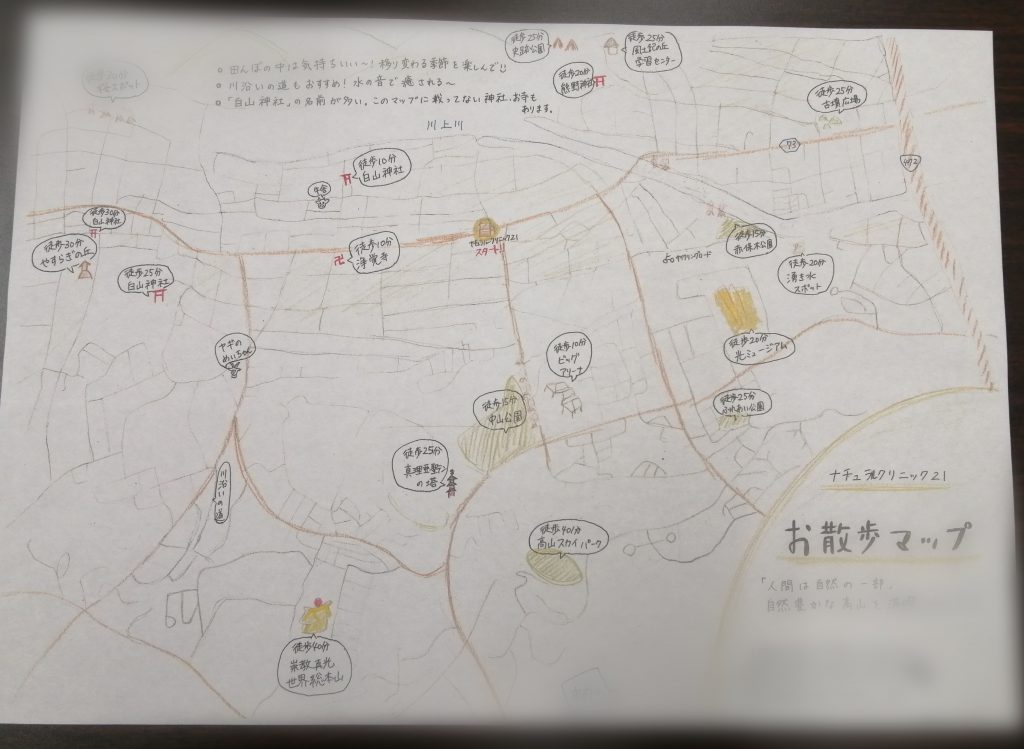 徒歩25分
史跡公園
徒歩25分
風土記の丘
学習センター
。田んぼの中は気持ちいい〜！移り変わる季節を楽しんで
。川沿いの道もおすすめ！水の音で癒される〜
。「白山神社」の名前が多い。このマップに載ってない神社、お寺も
あります。
徒歩30分
桜スポット
徒歩20分
熊野神社
徒歩25分
古墳広場
川上川
73
472
徒歩10分
白山神社
牛舎
徒歩30分
白山神社
徒歩30分
やすらぎの丘
徒歩25分
白山神社
徒歩10分
浄覚寺
ナチュラルクリニック21
スタート!!
徒歩15分
赤保木公園
サイクリングロード
徒歩20分
湧き水
スポット
ヤギの
めいちゃん
徒歩10分
ビッグ
アリーナ
徒歩20分
光ミュージアム
徒歩15分
中山公園
徒歩25分
ふれあい公園
徒歩25分
の塔
川沿いの道
ナチュラルクリニック21
お散歩マップ
「人間は自然の一部」
自然豊かな高山を
徒歩40分
高山スカイパーク
徒歩40分
崇教真光
世界総本山